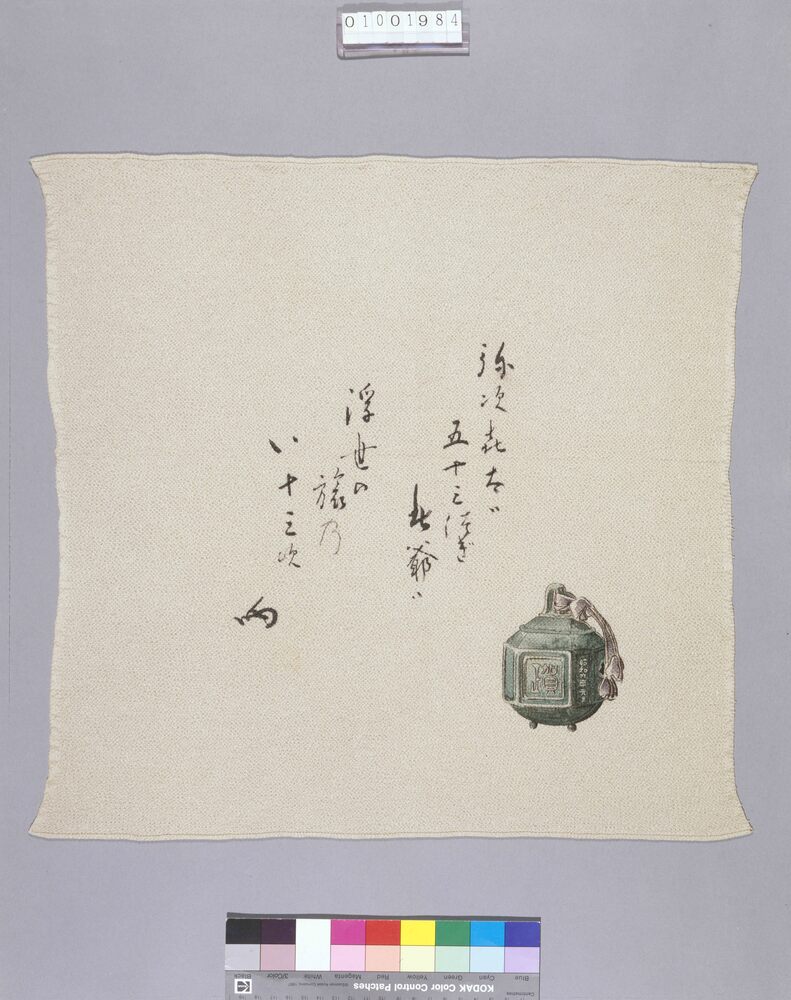 01001984
弥次喜太゛
五十三つぎ
浮世の
旅乃
八十三次
昭和九年
KODAK Color Control Patches
Blue
Cyan
Green
Yellow
Red
Magenta
White
3/Color
Black